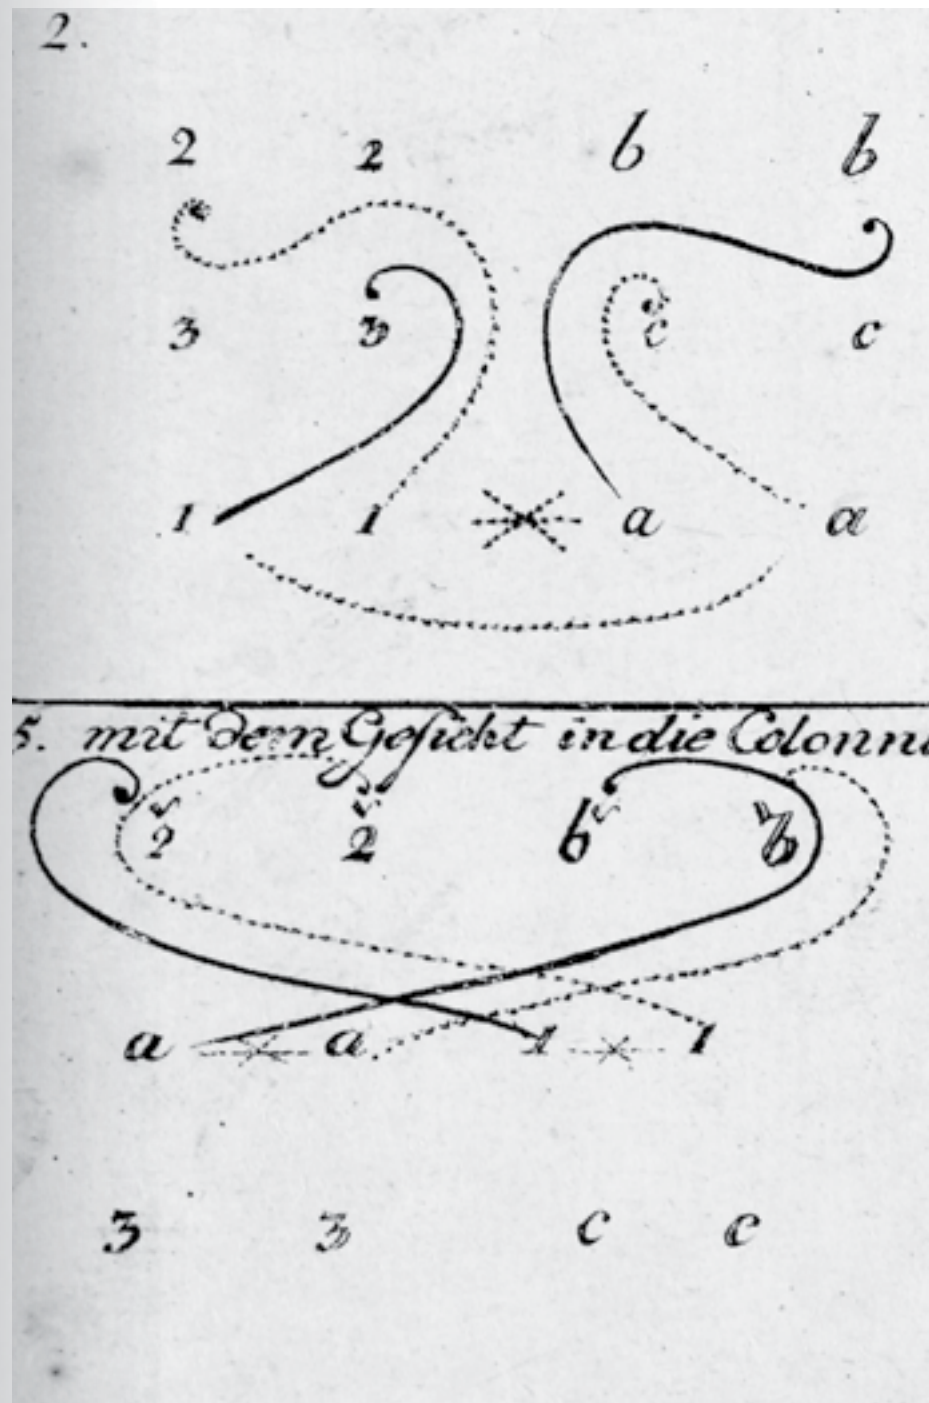 2.
2 2 b b
3 3 c c
1 1 a a
5. mit dem Gesicht in die Colonn
2 2 b b
a a 1 1
3 3 c c